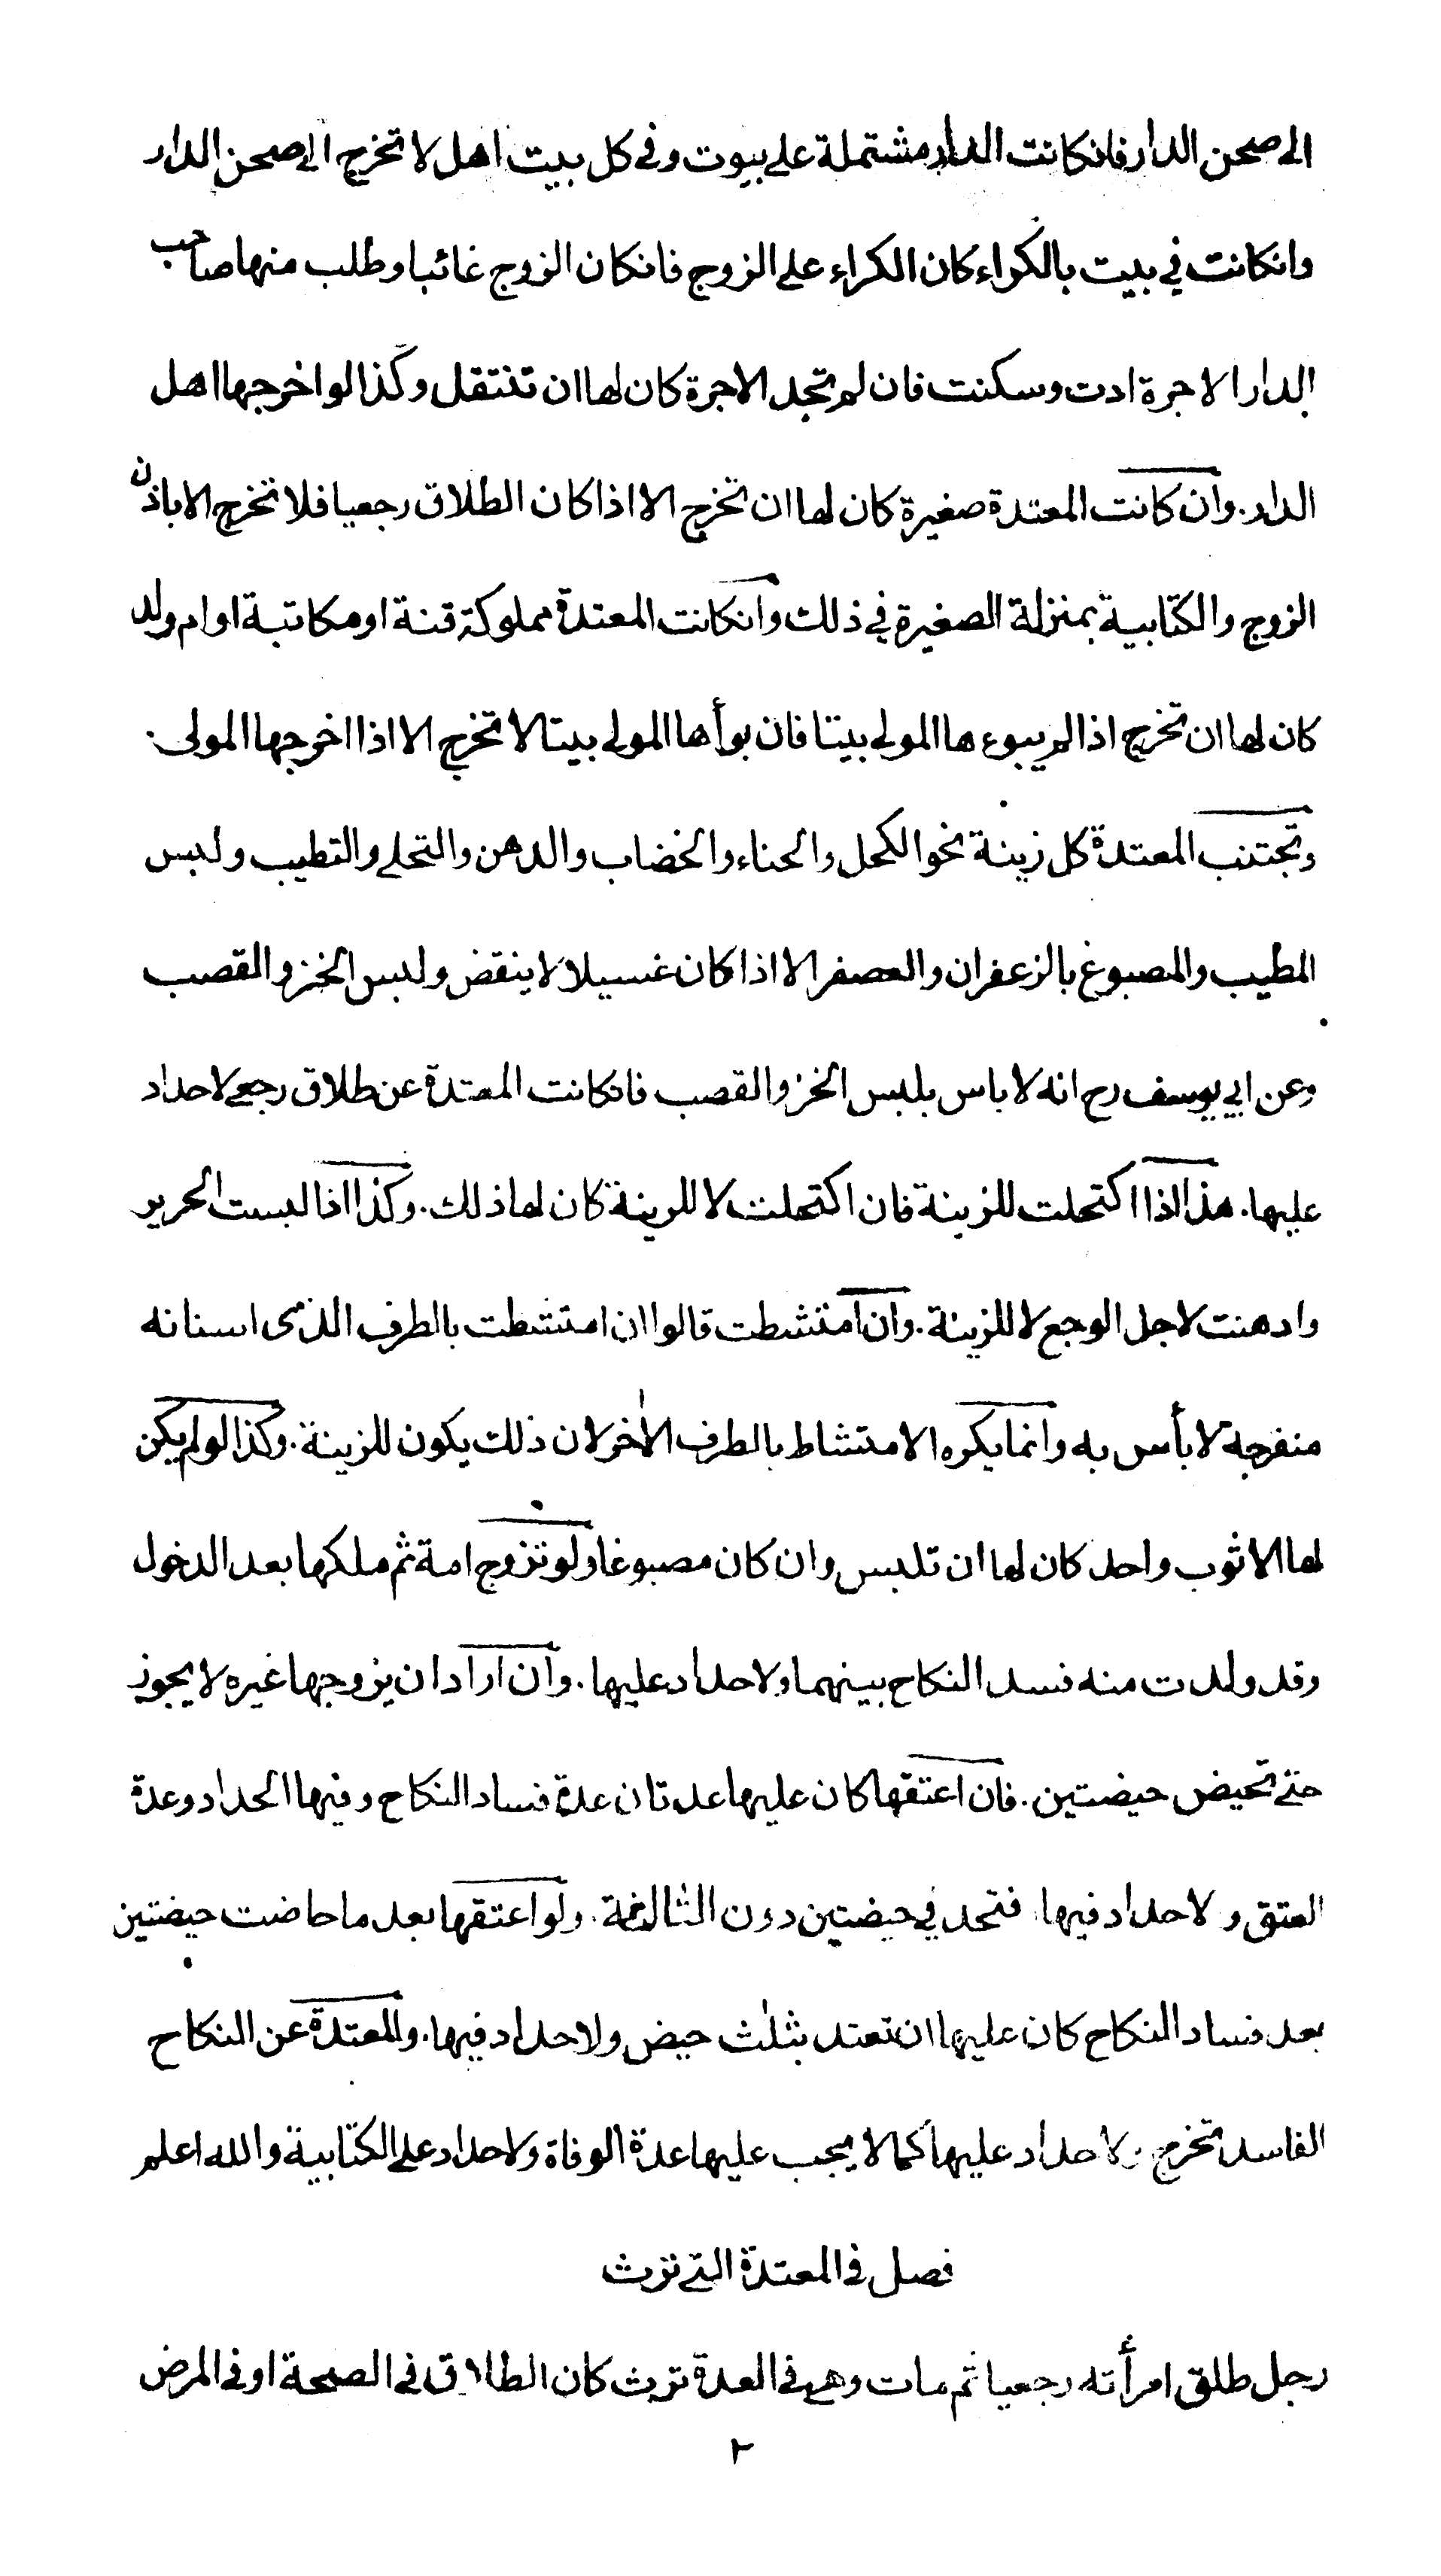 الى صحن الدار فانكانت الدار مشتملة على بيوت وفى كل بيت اهل لا تخرج الى صحن الدار
وانكانت في بيت بالكراء كان الكراء على الزوج فانكان الزوج غائبا وطلب منها صاحب
الدار الاجرة ادت وسكنت فان لم تجد الاجرة كان لها ان تنتقل وكذا لو اخرجها اهل
الدار. وان كانت المعتدة صغيرة كان لها ان تخرج الا اذا كان الطلاق رجعيا فلا تخرج الا باذن
الزوج والكتابية بمنزلة الصغيرة في ذلك وانكانت المعتدة مملوكة قنة او مكاتبة او ام ولد
كان لها ان تخرج اذا لم يبوءها المولى بيتا فان بوأها المولى بيتا لا تخرج الا اذا اخرجها المولى.
وتجتنب المعتدة كل زينة نحو الكحل والحناء والخضاب والدهن والتحلى والتطيب ولبس
المطيب والمصبوغ بالزعفران والعصفر الا اذا كان غسيلا لا ينفض ولبس الخز والقصب
وعن ابي يوسف رح انه لا باس بلبس الخز والقصب فانكانت المعتدة عن طلاق رجعى لا حداد
عليها. هذا اذا اكتحلت للزينة فان اكتحلت لا للزينة كان لها ذلك. وكذا اذا لبست الحرير
وادهنت لاجل الوجع لا للزينة. وان امتشطت قالوا ان امتشطت بالطرف الذى اسنانه
منفرجة لا بأس به وانما يكره الامتشاط بالطرف الآخر لان ذلك يكون للزينة. وكذا لو لم يكن
لها الا ثوب واحد كان لها ان تلبس وان كان مصبوغا ولو تزوج امة ثم ملكها بعد الدخول
وقد ولدت منه فسد النكاح بينهما ولا حداد عليها. وان اراد ان يزوجها غيره لا يجوز
حتى تحيض حيضتين. فان اعتقها كان عليها عدتان عدة فساد النكاح وفيها الحداد وعدة
العتق ولا حداد فيها فتحد في حيضتين دون الثالثة. ولو اعتقها بعد ما حاضت حيضتين
بعد فساد النكاح كان عليها ان تعتد بثلٰث حيض ولا حداد فيها. والمعتدة عن النكاح
الفاسد تخرج ولا حداد عليها كما لا يجب عليها عدة الوفاة ولا حداد على الكتابية والله اعلم
فصل فى المعتدة التى ترث
رجل طلق امرأته رجعيا ثم مات وهى فى العدة ترث كان الطلاق فى الصحة او فى المرض
٢